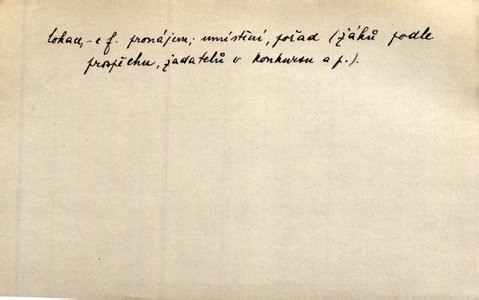 lokac,-e f. pronájem; umístění, pořad (žáků podle
prospěchu, žadatelů v konkursu a p.).